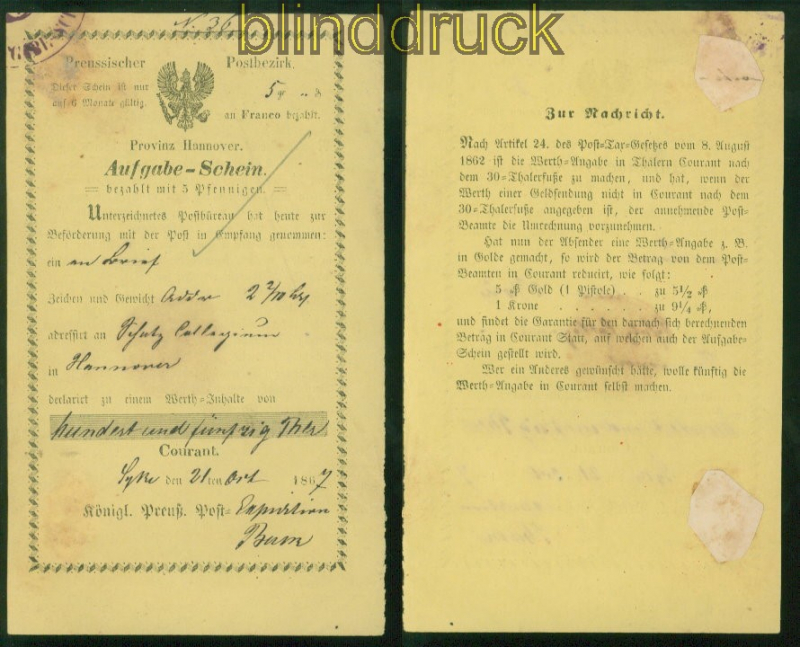 blinddruck
N. 36
Preussischer Postbezirk.
Dieser Schein ist nur
auf 6 Monate gültig.
5
an Franco bezahlt.
Provinz Hannover.
Aufgabe-Schein.
bezahlt mit 5 Pfennigen.
Unterzeichnetes Postbüreau hat heute zur
Beförderung mit der Post in Empfang genommen:
ein Brief
Zeichen und Gewicht Addr 2 7/10
adressirt an Schatz Collegium
in Hannover
declarirt zu einem Werth-Inhalte von
hundert und fünfzig Thlr
Courant.
Syke den 21ten Oct 1867
Königl. Preuß. Post-Expedition
Zur Nachricht.
Nach Artikel 24. des Post-Tax-Gesetzes vom 8. August
1862 ist die Werth-Angabe in Thalern Courant nach
dem 30-Thalerfuße zu machen, und hat, wenn der
Werth einer Geldsendung nicht in Courant nach dem
30-Thalerfuße angegeben ist, der annehmende Post-
Beamte die Umrechnung vorzunehmen.
Hat nun der Absender eine Werth-Angabe z. B.
in Golde gemacht, so wird der Betrag von dem Post-
Beamten in Courant reducirt, wie folgt:
5 ₰ Gold (1 Pistole) . . zu 5 1/2 ₰
1 Krone . . . . . . zu 9 1/4 ₰,
und findet die Garantie für den darnach sich berechnenden
Betrag in Courant Statt, auf welchen auch der Aufgabe-
Schein gestellt wird.
Wer ein Anderes gewünscht hätte, wolle künftig die
Werth-Angabe in Courant selbst machen.